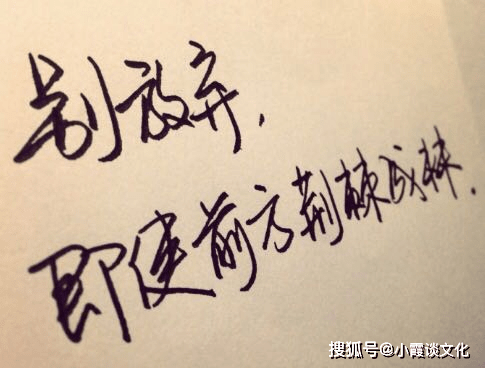 别放弃,
即使前方荆棘成林.
搜狐号@小霞谈文化